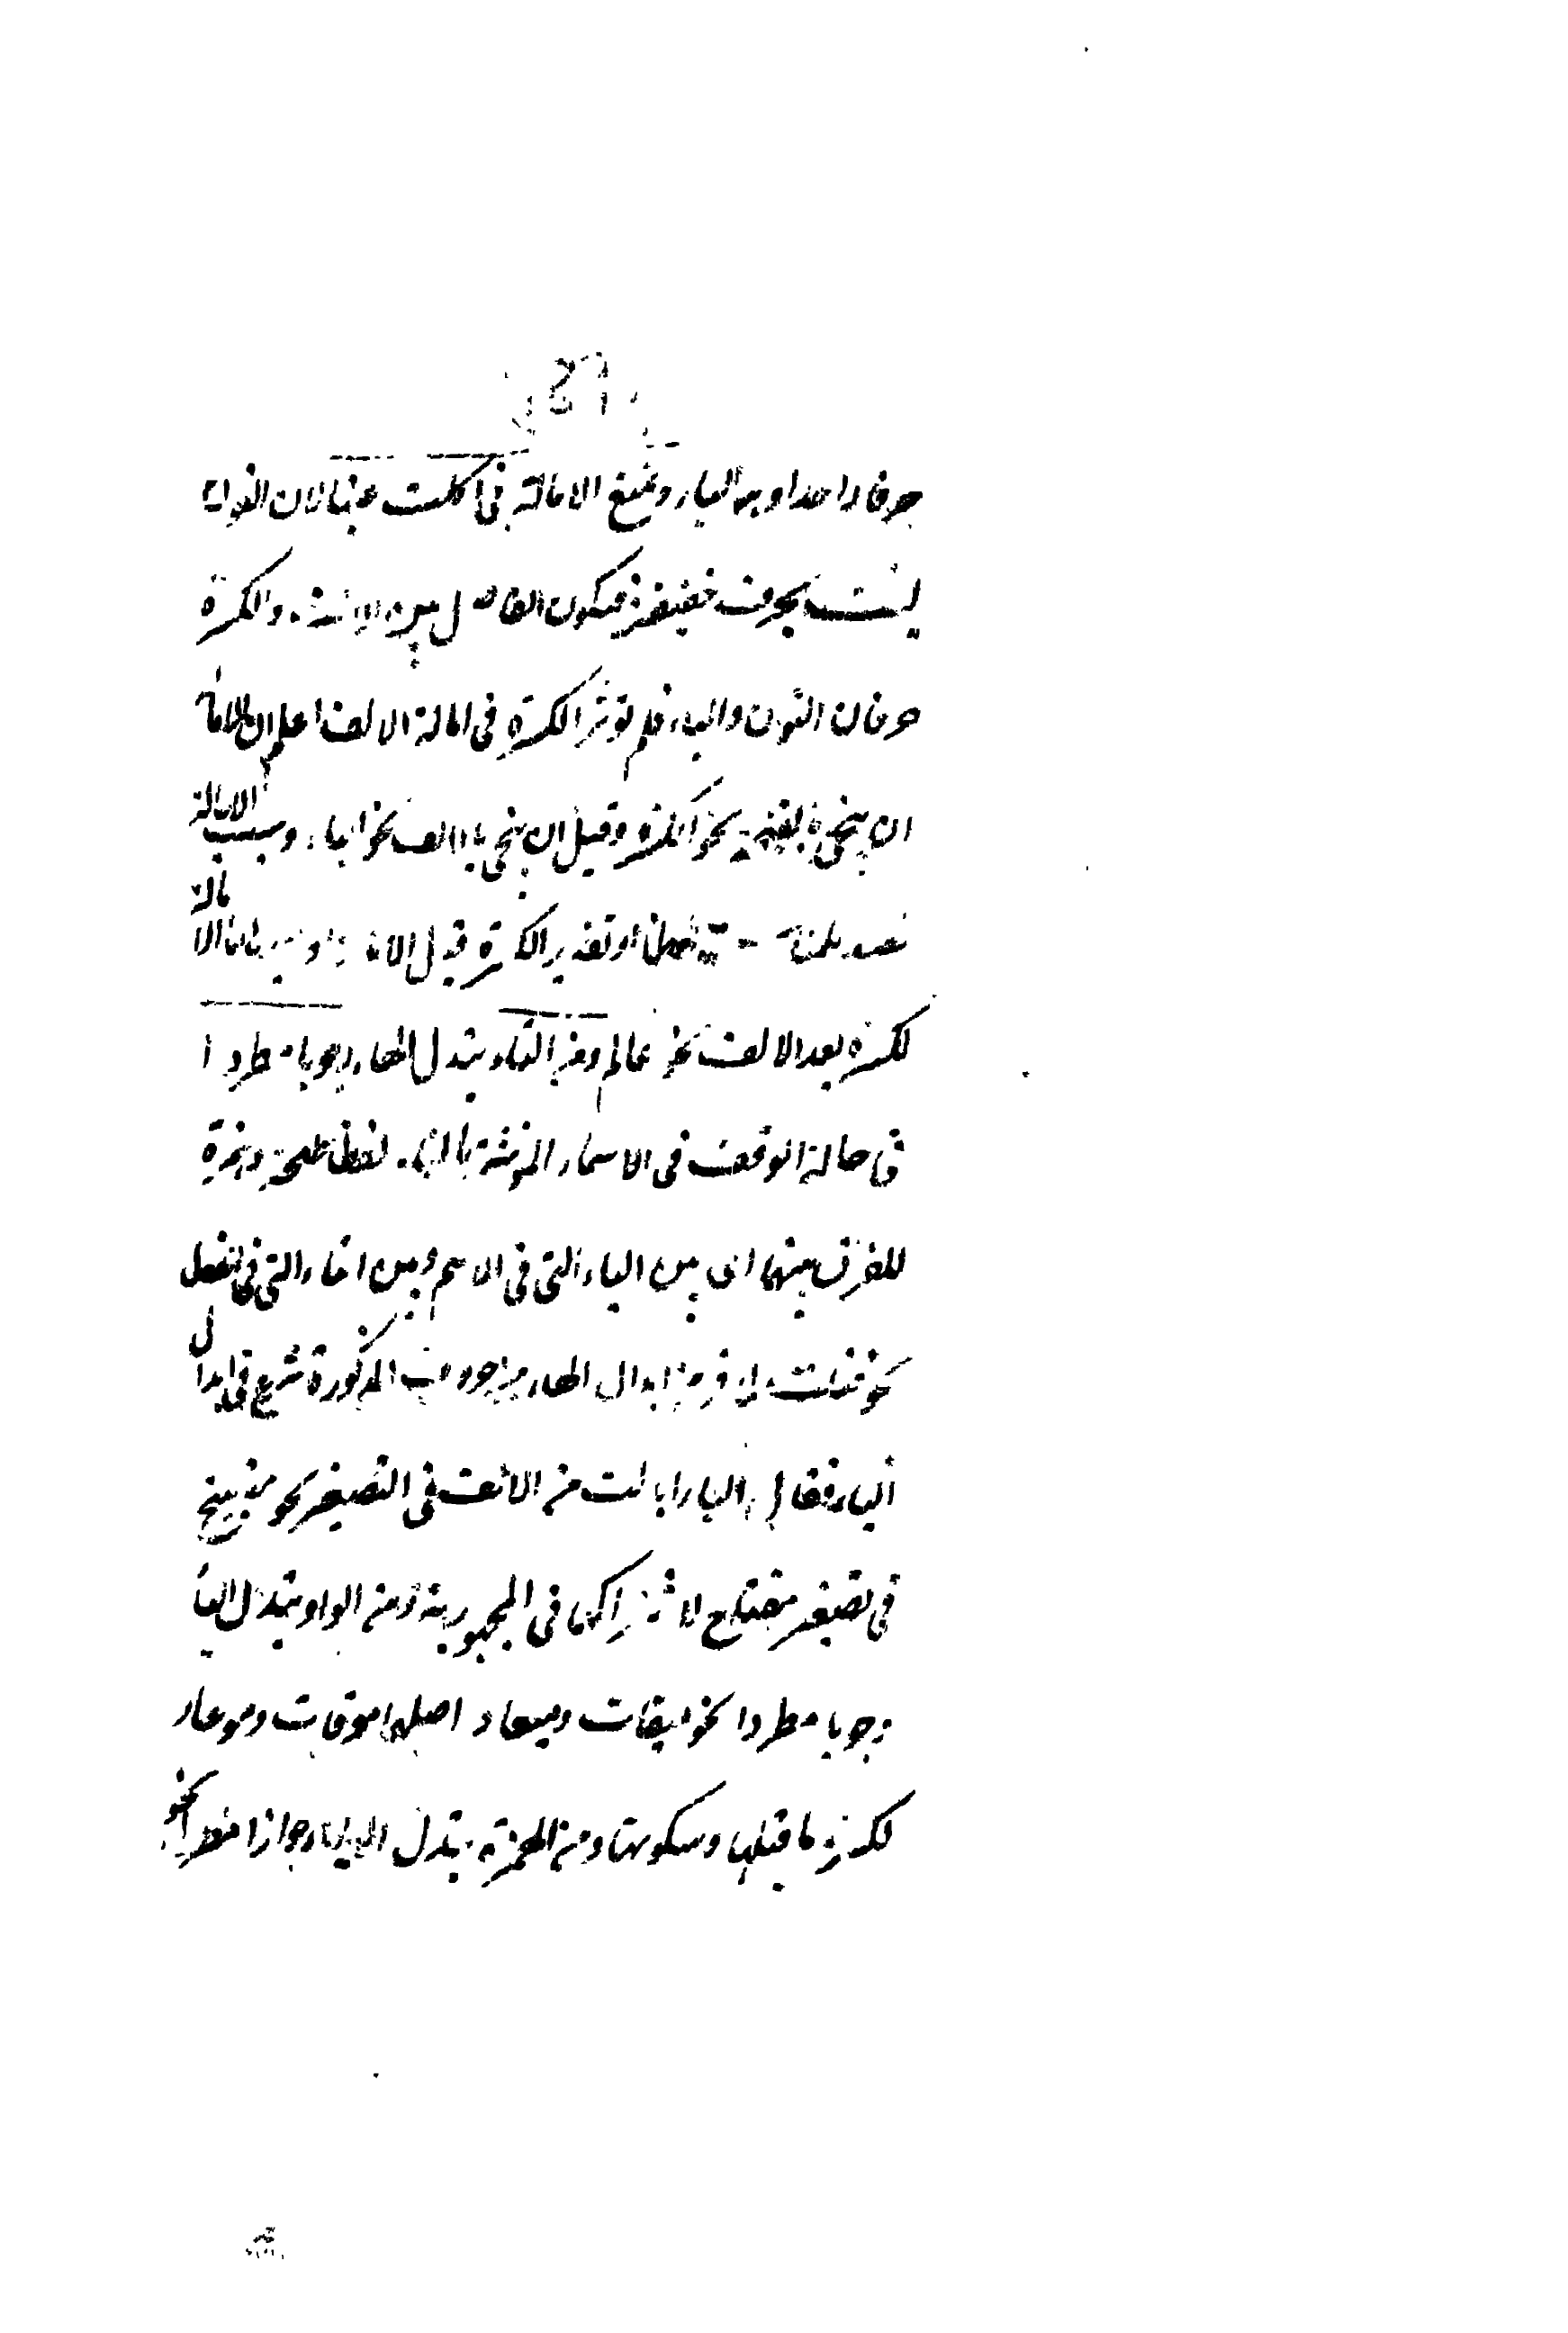 حرفا واحدا وهو الياء ويمتنع الامالة في اكلت عنبا لان النون
ليست بحرف خفيفة فيكون الفاصل بين الالف والكسرة
حرفان النون والباء فلم تؤثر الكسرة في امالة الالف اعلم ان الامالة
ان ينحى بالفتحة نحو الكسرة وقيل ان ينحى بالالف نحو الياء وسبب الامالة
او تقدير الكسرة قبل
لكسرة بعد الالف نحو عالم ومن التاء يبدل الهاء وجوبا مطردا
في حالة الوقف في الاسماء المؤنثة بالتاء لفظا طلحة وحمزة
للفرق بينهما اى بين التاء التى في الاسم وبين التاء التى في الفعل
نحو ابدال الهاء من حروف المذكورة شرع في ابدال
الياء فقال الياء ابدلت من الالف في التصغير نحو مفيتيح
في تصغير مفتاح في المجهورية ومن الواو يبدل الياء
وجوبا مطردا نحو ميقات وميعاد اصلهما موقات وموعاد
لكسرة ما قبلها وسكونها ومن الهمزة يبدل الياء جوازا مطردا نحو